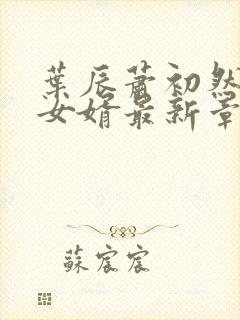 葉辰蕭初然
女婿最新章
蘇宸宸